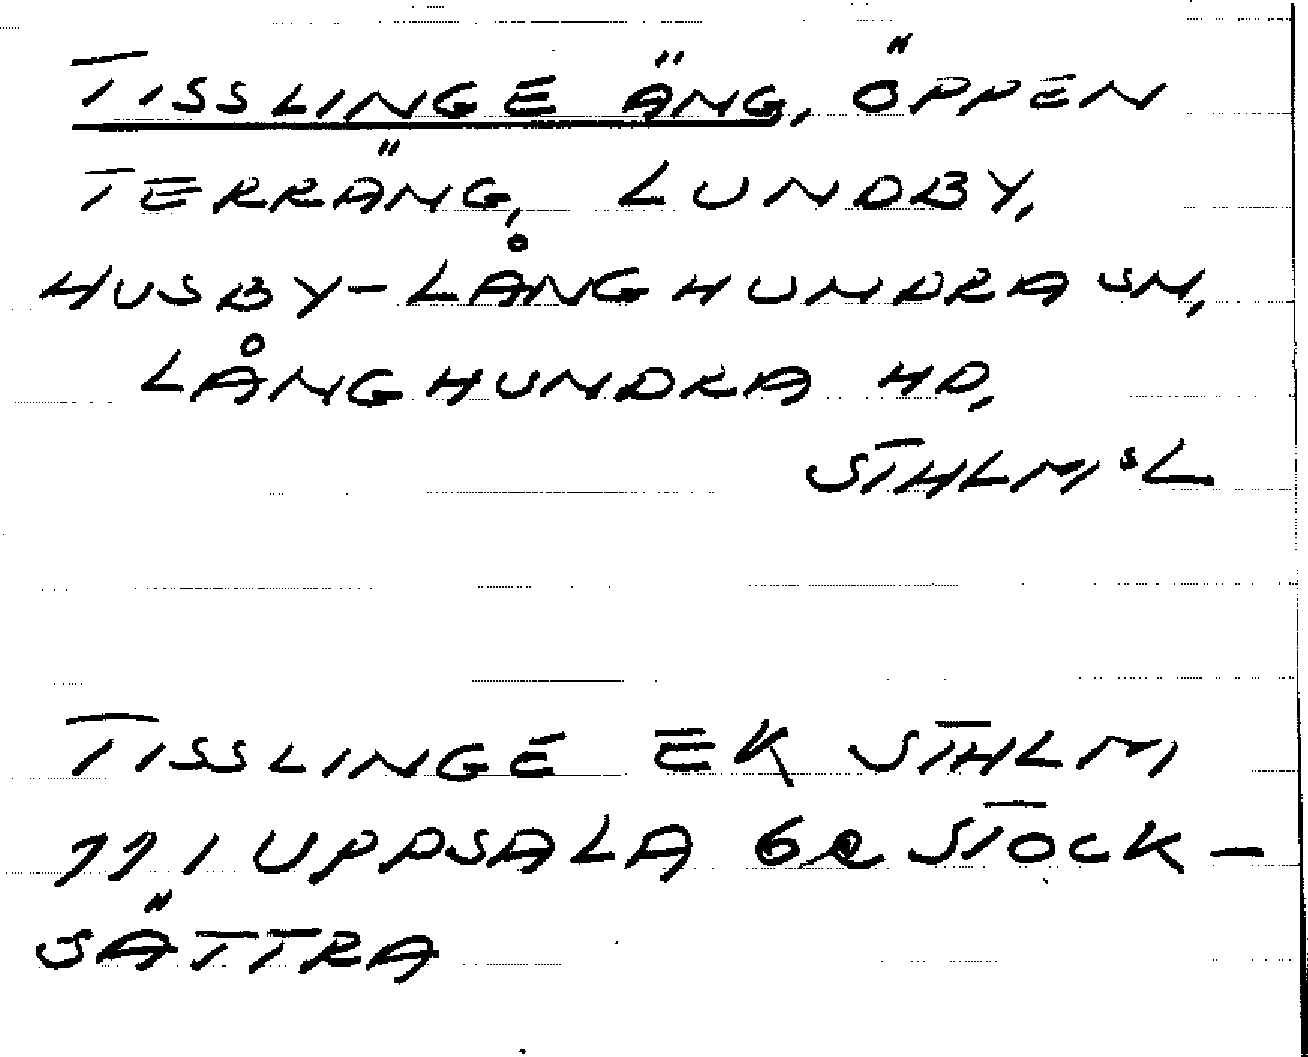 TISSLINGE ÄNG, ÖPPEN
TERRÄNG, LUNDBY,
HUSBY-LÅNGHUNDRA SN,
LÅNGHUNDRA HD,
STHLMSL
TISSLINGE EK STHLM
111 UPPSALA 6e STOCK-
SÄTTRA